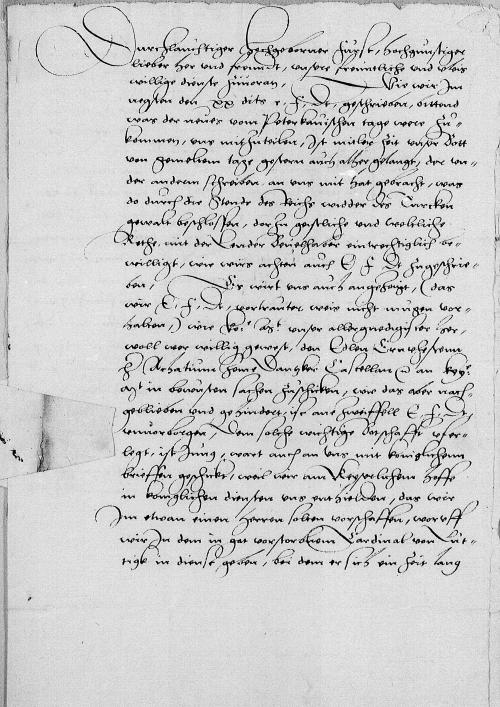 Durchlauchtiger Hochgeborner Furst, hochgunstiger
lieber her und freundt, unsere freuntliche und vleis
willige dienste zuuoran, Wie wir Im
negsten den xx dits e. f. Dt. geschrieben, bittend
was der neues vom Peterkauischen tage were zu
kommen, uns mitzuteilen, Ist mitler Zeit unser Bott
von gemeltem tage gestern auch alher gelangt, der un-
der andern schreiben an uns mit hat gebracht, was
do durch die Stende des Reichs widder des Turcken
gewalt beschlossen, dorzu geistliche und weltliche
Rethe, mit der Lender Beuelhaber eintrechtiglich be-
willigt, wie wirs achten auch E f Dt zugeschrie-
ben, Er wirt uns auch angezeigt, (das
wir E. f. Dt. vortrauter weis nicht mugen vor-
halten,) wie ko. Mt. unser allergnedigster her,
woll wer willig gewest, den Edlen Ernvhesten
h Achatium Danzker Castellan an
Mt in bewusten sachen zuschicken, wie das aber nach-
geblieben und gehindert, ist ane zweiffell E. f. D.
unuorborgen, Dem solche wichtige Botschafft ufer-
legt, ist Jung, wart auch an uns mit koniglichenn
brieffen geschickt, weil wir am Keyserlichem hoffe
in koniglichen diensten uns enthielden, das wir
Im etwan einen herren solten vorschaffen, woruff
wir In dem in got vorstorbnem Cardinal von Lut-
tigk in dienst geben, bei dem er sich ein Zeit lang